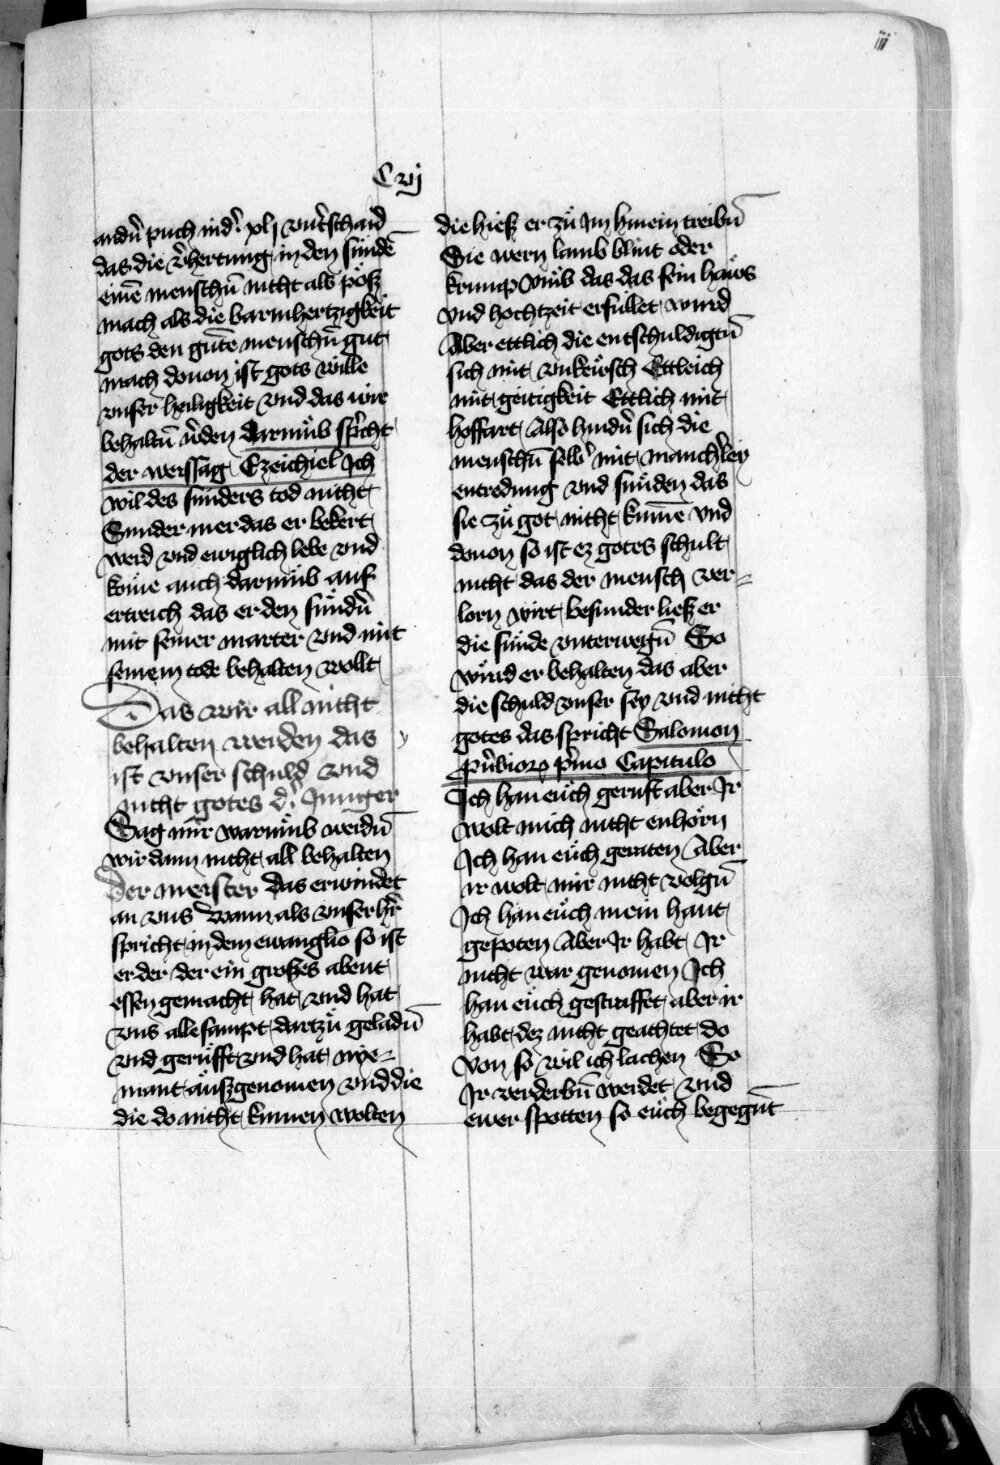 iij
Cvij
andn̄ puch in d' xlj vnt'schaid
das die v'hertung in den sundē
einē menschn̄ nicht als pöß
mach als die barmhertzigkeit
gots den gutē menschn̄ gut
mach douon ist gots wille
vnser heiligkeit vnd das wir
behaltn̄ w'den darumb sp'icht
der weissag Ezeichiel Ich
wil des sunders tod nicht
Sunder mer das er bekert
werd vnd ewiglich lebe vnd
kome auch darumb auf
ertreich das er den sundn̄
mit seiner marter vnd mit
seinem tode behalten wollt
Das wir all nicht
behalten werden das
ist vnser schuld vnd
nicht gotes d' Junger
Sag mir warumb werdn̄
wir dann nicht all behalten
der meister das erwindet
an vns wann als vnser h'r
spricht in dem ewanglio so ist
er der der ein großes abent
essen gemacht hat vnd hat
vns alle sampt dartzu geladn̄
vnd gerufft vnd hat nye-
mant außgenomen vnd die
die do nicht kumen wolten
die hieß er zu Jm hinein treibn̄
Sie wern lamb blint oder
krump vmb das das sein haws
vnd hochtzeit erfullet wurd
Aber ettlich die entschuldigtn̄
sich mit vnkeusch Ettleich
mit geitigkeit Ettlich mit
hoffart Also hindn̄ sich die
menschn̄ selb' mit manch'ley
entredung vnd sunden das
sie zu got nicht kumē vnd
douon so ist ez gotes schult
nicht das der mensch ver-
lorn wirt besunder ließ er
die sunde vnterwegn̄ So
wurd er behalten das aber
die schuld vnser sey vnd nicht
gotes das spricht Salomon
p'u'bior p'mo Capitulo
Ich han euch geruft aber Ir
wolt mich nicht enhorn
Ich han euch geraten Aber
ir wolt mir nicht volgn̄
Ich han euch mein hant
gepoten Aber Ir habt Ir
nicht war genomen Ich
han euch gestraffet aber ir
habt dez nicht geachtet do
von so wil ich lachen So
Ir verderbn̄ werdet vnd
ewer spotten so euch begegn̄t